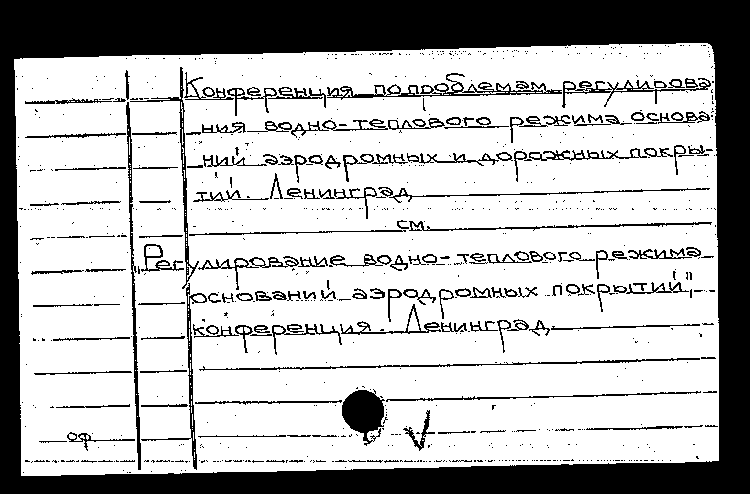 Конференция по проблемам регулирова
ния водно-теплового режима основа
ний аэродромных и дорожных покры-
тий. Ленинград
см.
„Регулирование водно-теплового режима
оснований аэродромных покрытий",
конференция. Ленинград.
оф